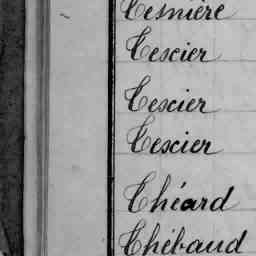 Tesnière
Tescier
Tescier
Tescier
Théard
Thébaud